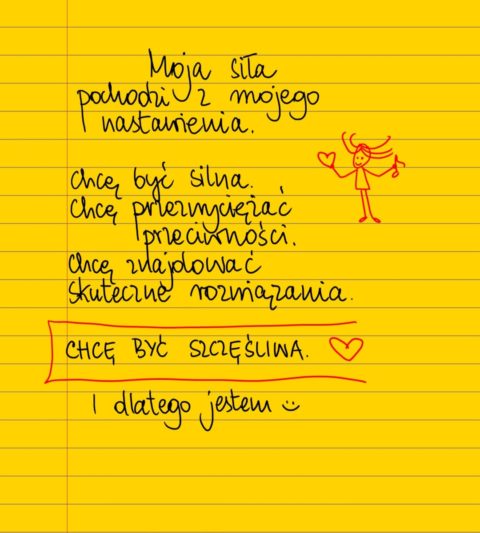 Moja siła
pochodzi z mojego
nastawienia.
chcę być silna.
chcę przezwyciężać
przeciwności.
chcę znajdować
skuteczne rozwiązania.
CHCĘ BYĆ SZCZĘŚLIWA.
I dlatego jestem